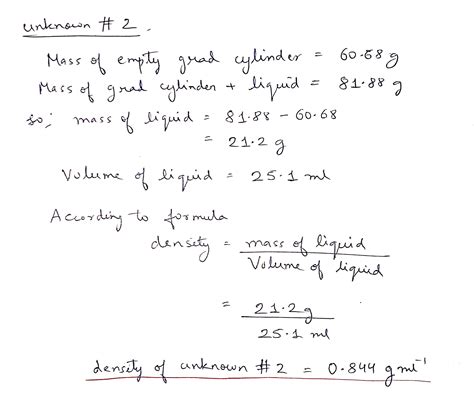 unknown # 2.
Mass of empty grad cylinder = 60.68 g
Mass of grad cylinder + liquid = 81.88 g
so; mass of liquid = 81.88 - 60.68
= 21.2 g
Volume of liquid = 25.1 ml
According to formula
density = mass of liquid
Volume of liquid
= 21.2 g
25.1 ml
density of unknown # 2 = 0.844 g ml⁻¹